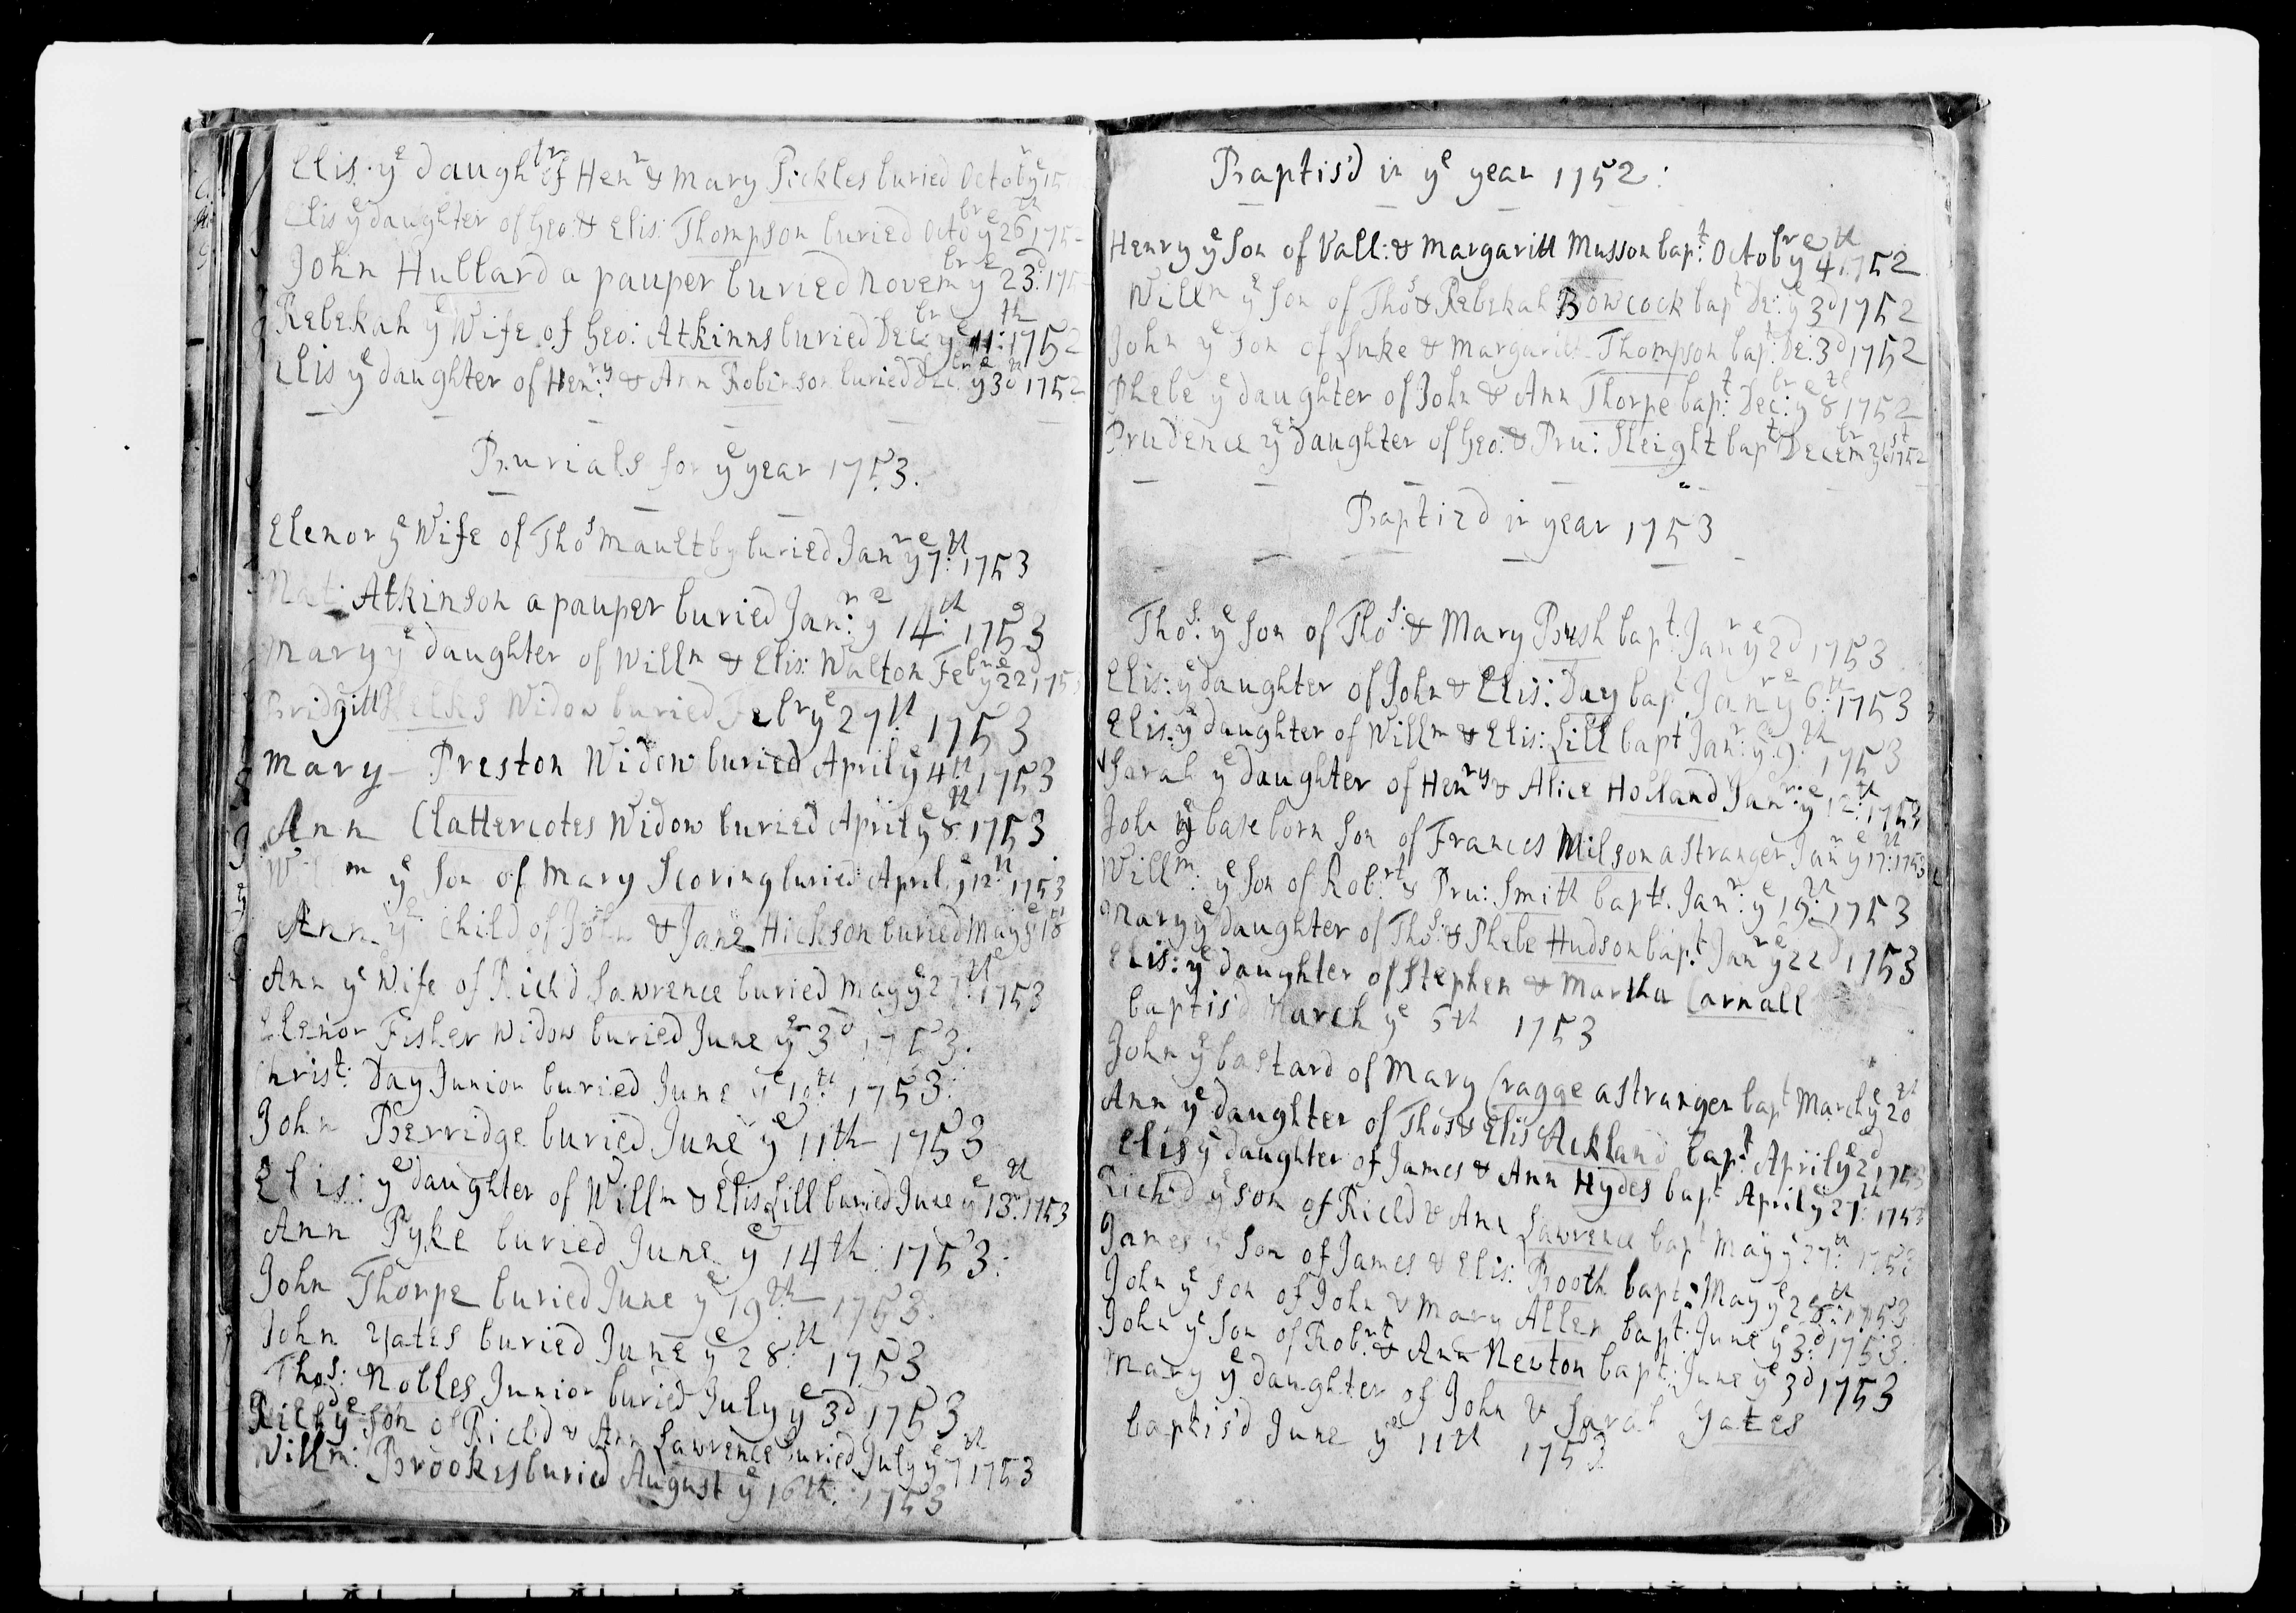 Elis: ye daughtr of Henr & Mary Pickles buried Octobr ye 15
Elis ye daughter of Geo: & Elis: Thompson buried Octobr ye 26th 175
John Hubbard a pauper buried Novembr ye 23d: 175
Rebekah ye Wife of Geo: Atkinns buried Decbr ye 11th: 1752
Elis ye daughter of Henry & Ann Robinson buried Decbr ye 30th 1752
Burials for ye year 1753.
Elenor ye Wife of Thos Maultby buried Janr ye 7th: 1753
Nat: Atkinson a pauper buried Janr: ye 14th: 1753
Mary ye daughter of Willm & Elis: Walton Febr ye 22d 175
Bridgitt Widow buried Febr ye 27th 1753
Mary Preston Widow buried April ye 4th 1753
Ann Clattercotes Widow buried April ye 8th 1753
Willm ye Son of Mary Scoring buried April ye 12th 1753
Ann ye Child of John & Jane Hickson buried May ye 18
Ann ye Wife of Rich'd Lawrence buried May ye 27th: 1753
Elenor Fisher Widow buried June ye 3d 1753.
Christ: Day Junior buried June ye 10th 1753:
John Berridge buried June ye 11th 1753
Elis: ye daughter of Willm & Elis Lill buried June ye 13th: 1753
Ann Pyke buried June ye 14th: 1753:
John Thorpe buried June ye 19th 1753.
John Yates buried June ye 28th 1753
Thos: Nobles Junior buried July ye 3d 1753
Richd ye Son of Richd & Ann Lawrence buried July ye 7th 1753
Willm: Brookes buried August ye 16th: 1753
Baptis'd in ye year 1752:
Henry ye Son of Vall: & Margaritt Musson bapt: Octobr ye 4th 1752
Willm ye Son of Thos & Rebekah Bowcock bapt De: ye 3d 1752
John ye Son of Luke & Margaritt Thompson bapt: De: 3d 1752
Phebe ye daughter of John & Ann Thorpe bapt: Decbr: ye 8th 1752
Prudence ye daughter of Geo: & Pru: Sleight bapt Decembr ye 31st 1752
Baptiz'd in year 1753
Thos: ye Son of Thos: & Mary Bush bapt: Janr ye 2d 1753
Elis: ye daughter of John & Elis: Day bapt Janr ye 6th: 1753
Elis: ye daughter of Willm & Elis: Lill bapt Janr: ye 9th: 1753
Sarah ye daughter of Henry & Alice Holland Janr: ye 12th: 1753
John ye base born Son of Frances Milson a Stranger Janr ye 17th: 1753
Willm: ye Son of Robrt & Pru: Smith bapt. Janr: ye 19th: 1753
Mary ye daughter of Thos: & Phebe Hudson bapt: Janr ye 22d 1753
Elis: ye daughter of Stephen & Martha Carnall
baptis'd March ye 6th 1753
John ye bastard of Mary Cragge a Stranger bapt March ye 20th
Ann ye daughter of Thos & Elis Ackland bapt: April ye 2d 1753
Elis ye daughter of James & Ann Hydes bapt April ye 27th: 1753
Rich'd ye Son of Richd & Ann Lawrence bapt May ye 27th: 1753
James ye Son of James & Elis: Booth bapt: May ye 28th: 1753
John ye Son of John & Mary Allen bapt: June ye 3d: 1753.
John ye Son of Robrt & Ann Newton bapt: June ye 3d 1753
Mary ye daughter of John & Sarah Yates
baptis'd June ye 11th 1753